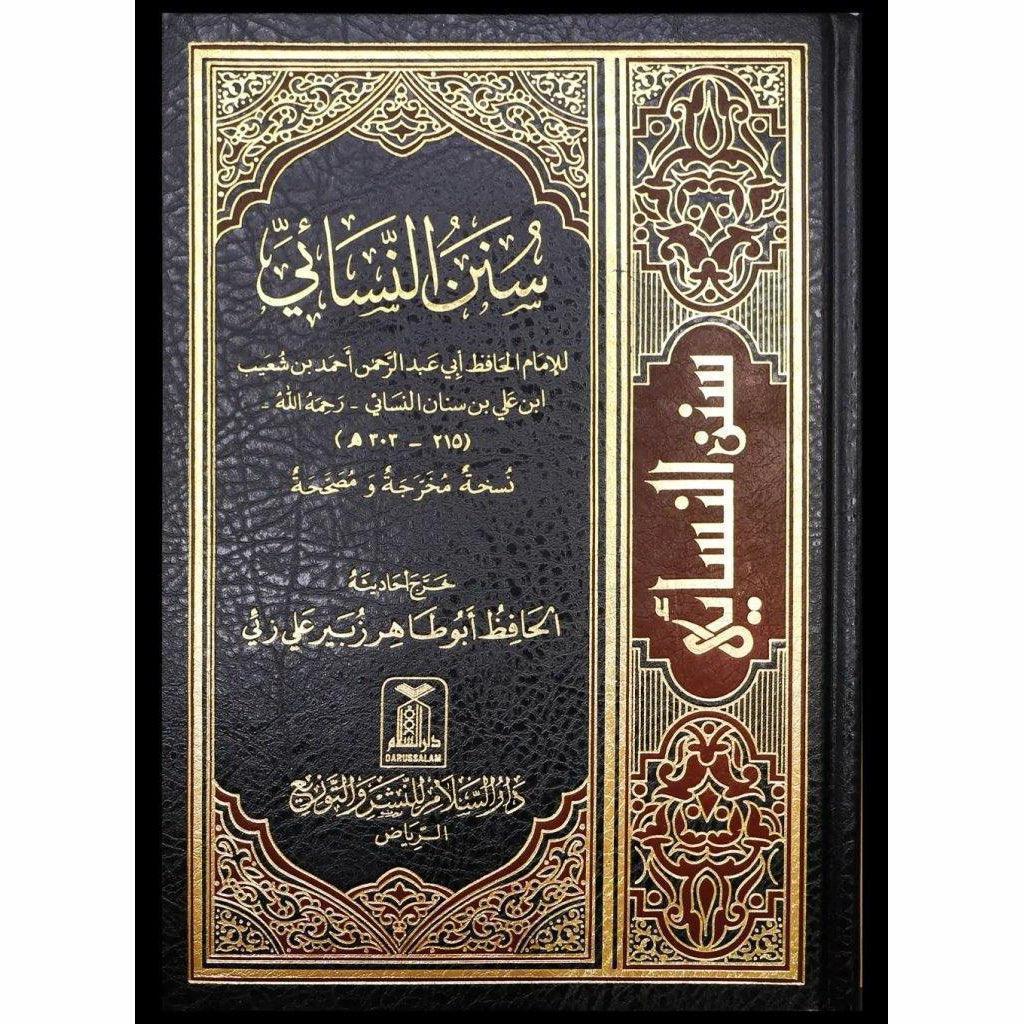 سُنَنُ النَّسَائِيِّ
للإمَام الحَافِظ أبي عَبد الرَّحمٰن أحمَد بن شُعَيب
ابن عَلي بن سنان النسَائي - رَحِمَهُ اللهُ -
(٢١٥ - ٣٠٣ ه)
نُسخَةٌ مُخَرَّجَةٌ وَ مُصَحَّحَةٌ
خَرَّجَ أحَاديثَهُ
الحَافِظُ أبُو طَاهِر زُبَير عَلي زئي
دار السلام
DARUSSALAM
دَارُ السَّلَامِ لِلنَّشْرِ وَالتَّوْزِيع
الرِّيَاض
سنن النسائي